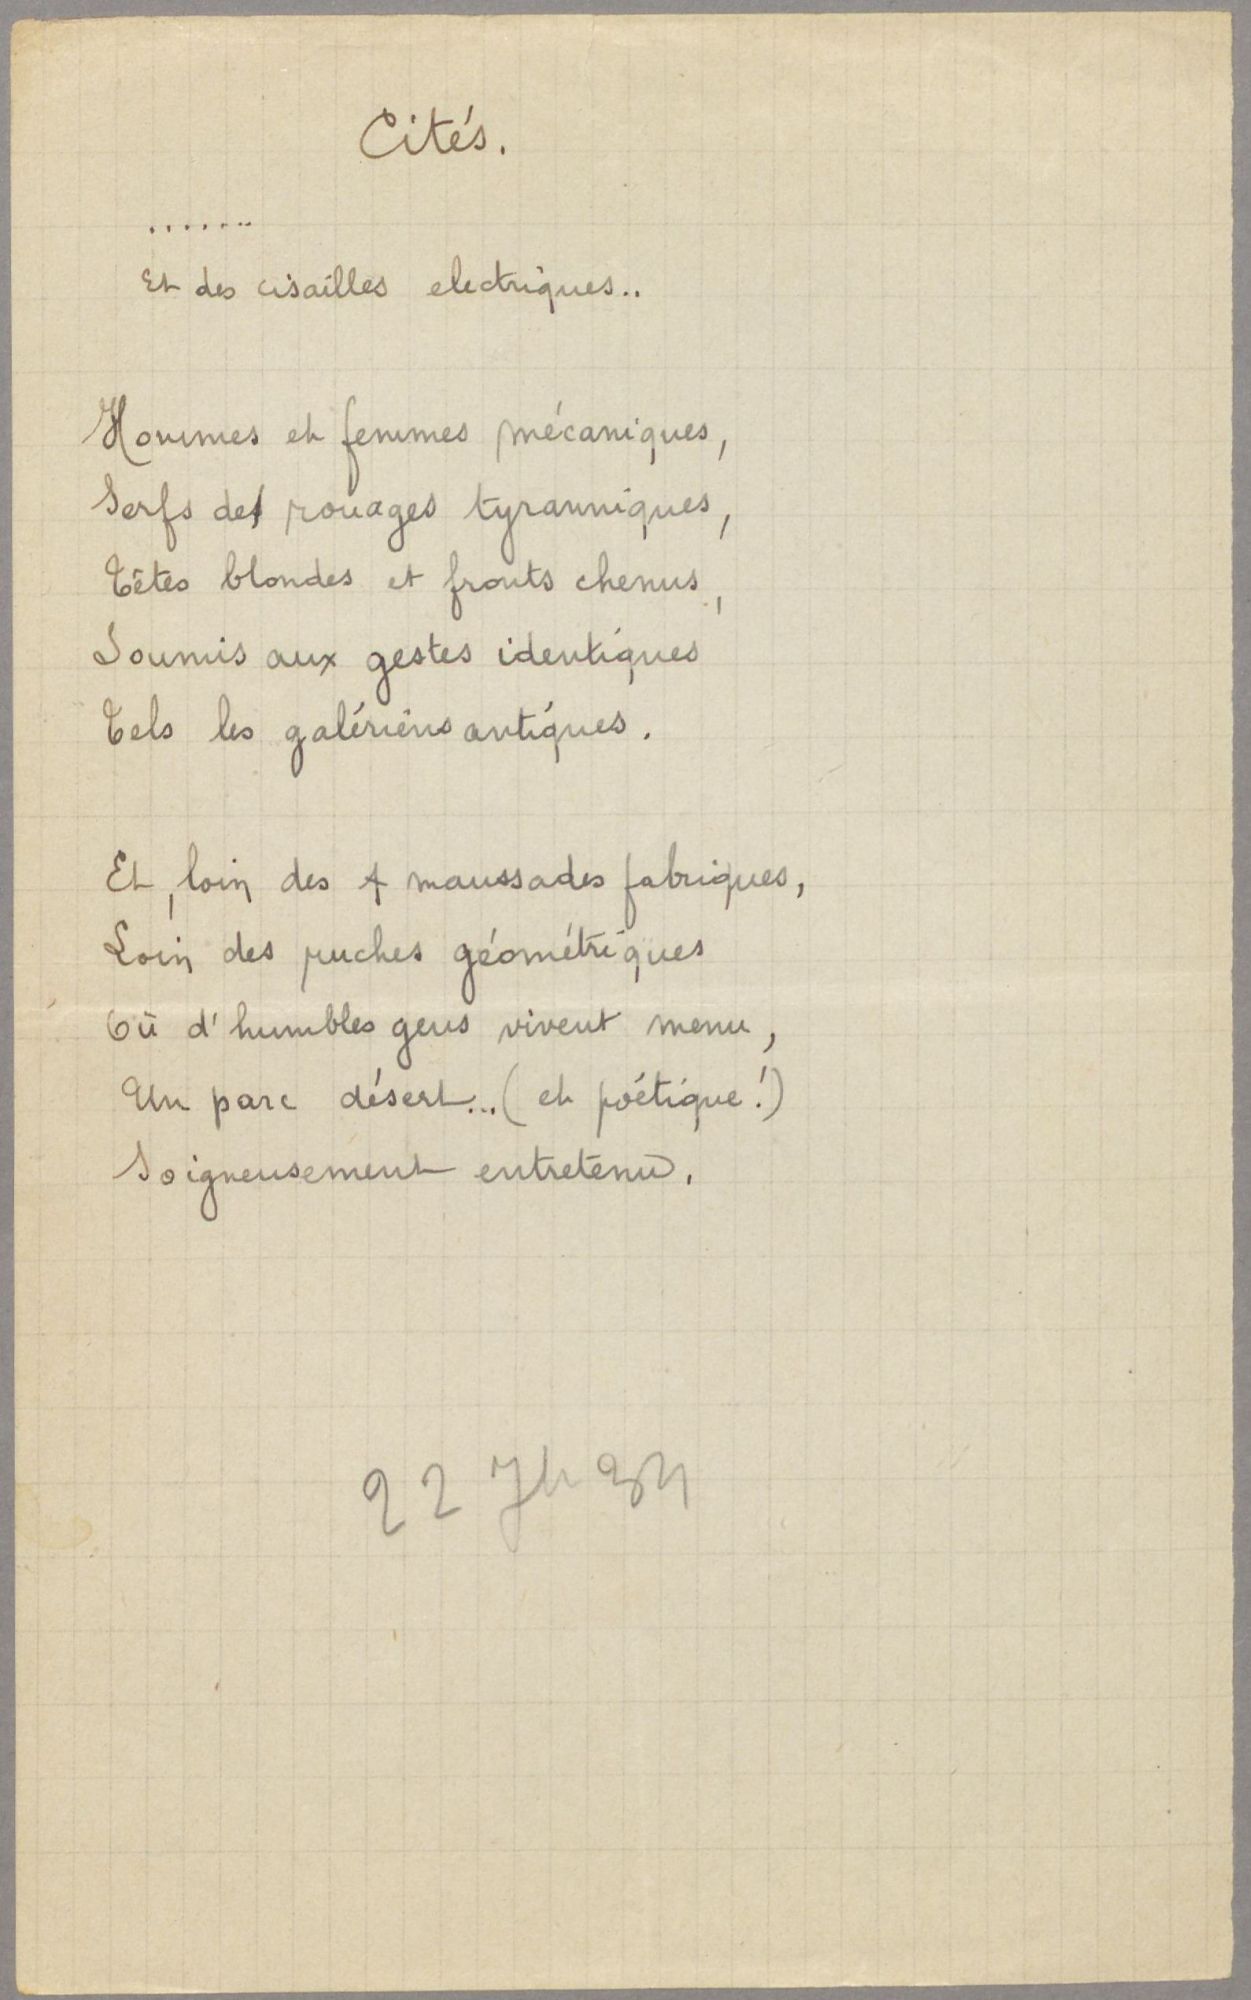 Cités.
.......
Et des cisailles electriques..
Hommes et femmes mécaniques,
Serfs des rouages tyranniques,
Têtes blondes et fronts chenus,
Soumis aux gestes identiques
Tels les galériens antiques.
Et, loin des maussades fabriques,
Loin des ruches géométriques
Où d'humbles gens vivent menu,
Un parc désert...(et poétique!)
Soigneusement entretenu.
22